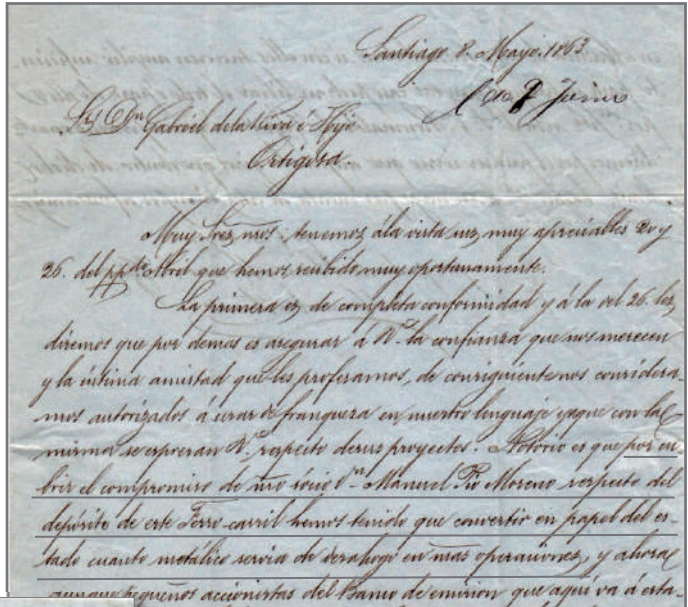 Santiago 8. Mayo. 1863.
Junio
Sres Dn Gabriel de la Riva é Hijo
Ortigosa
Muy Sres nros. tenemos á la vista sus muy apreciables 20 y
26. del pp.do Abril que hemos recibido muy oportunamente.
La primera es de completa conformidad y á la del 26. les
diremos que por demas es asegurar á Vs. la confianza que nos merecen
y la íntima amistad que les profesamos, de consiguiente nos considera-
mos autorizados á usar de franqueza en nuestro lenguaje ya que con la
misma se espresan Vs. respecto de sus proyectos. Notorio es que por cu-
brir el compromiso de nro sócio Dn. Manuel Pio Moreno respecto del
depósito de este Ferro-carril hemos tenido que convertir en papel del es-
tado cuanto metálico servia de desahogo en nras operaciones, y ahora
aunque pequeños accionistas del Banco de emision que aqui va á esta-